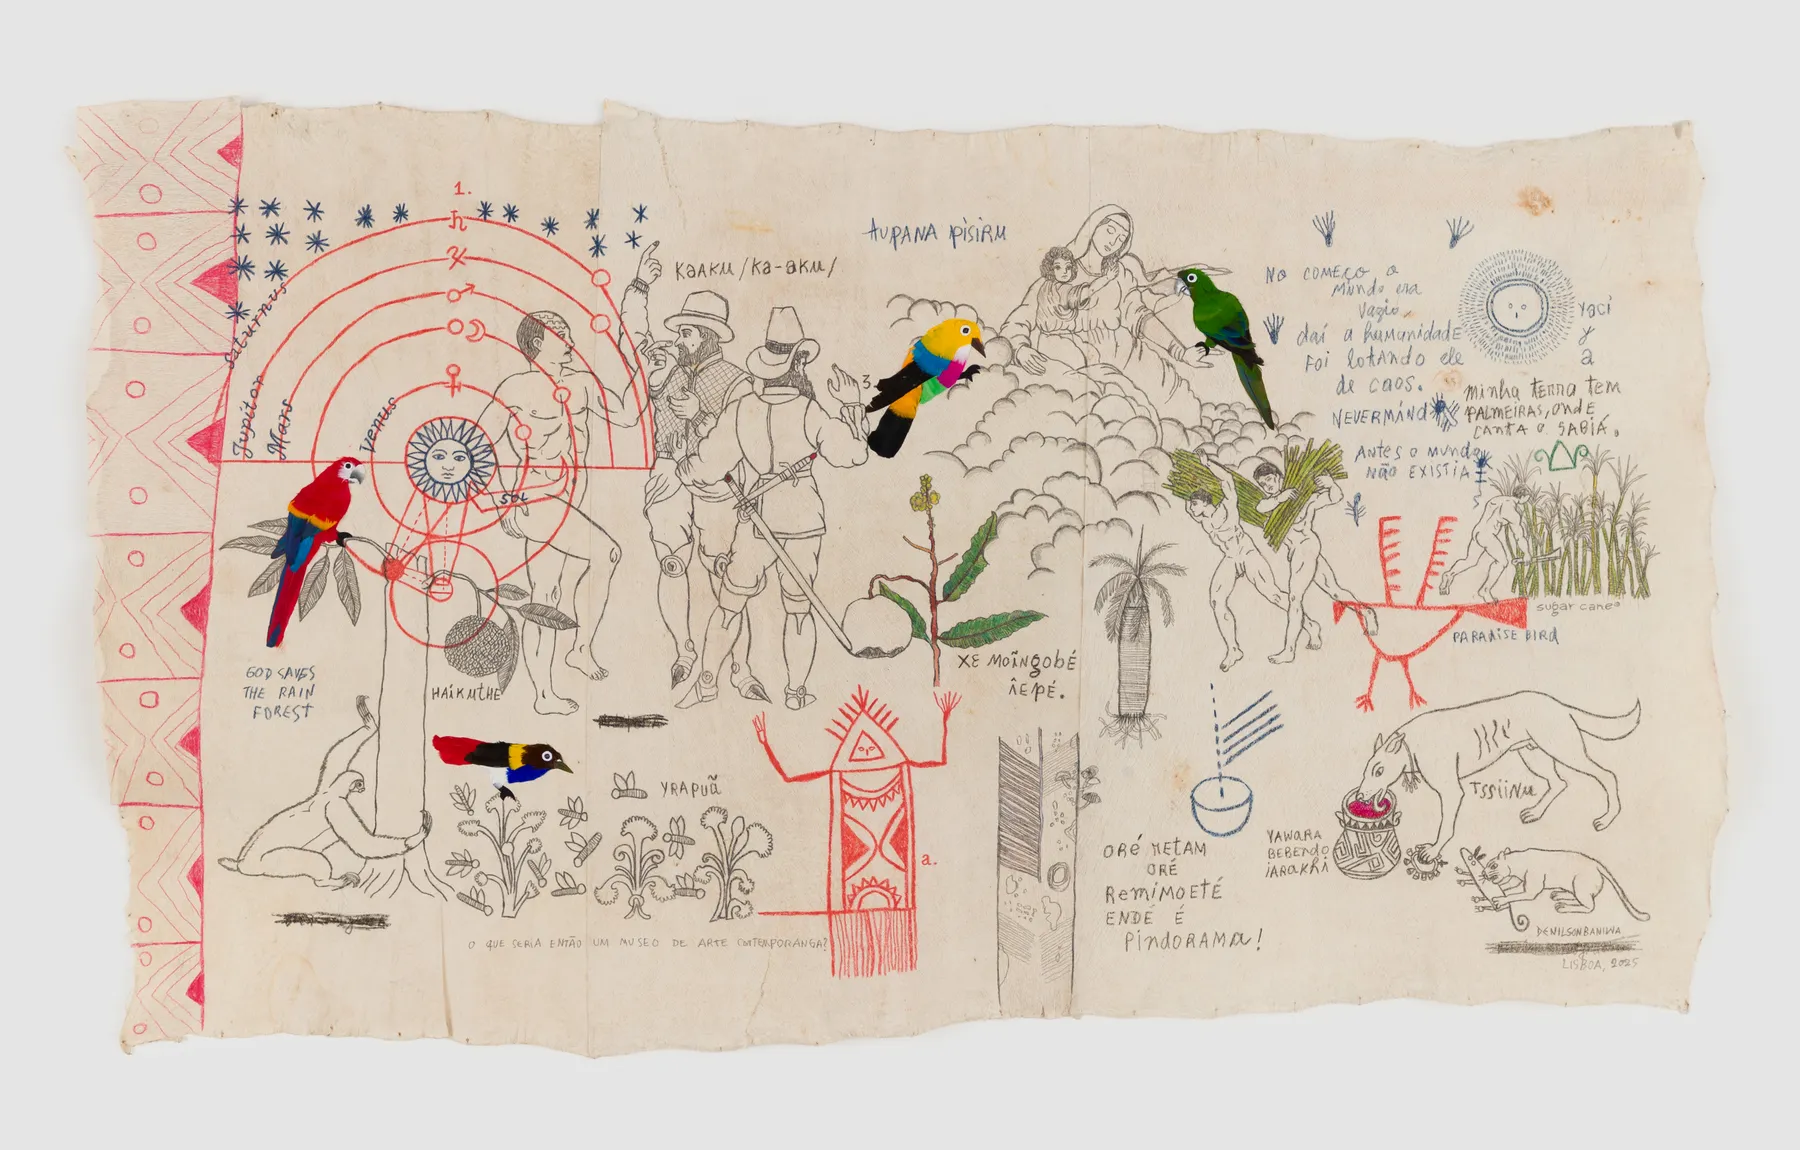 1.
Saturnus
Jupitor
Mars
Venus
SOL
KAAKU/KA-AKU/
3
AUPANA PISIRU
NO COMEÇO O
MUNDO ERA
VAZIO,
daí a humanidade
FOI LOTANDO ELE
DE CAOS.
NEVERMIND
ANTES O MUNDO
NÃO EXISTIA
YACI
Y
A
MINHA TERRA TEM
PALMEIRAS, ONDE
CANTA O SABIÁ.
sugar canes
PARADISE BIRD
GOD SAVES
THE RAIN
FOREST
HAIKUTHE
XE MOĨNGOBÉ
ÎEPÉ.
YRAPUÃ
a.
ORÉ RETAM
ORÉ
REMIMOETÉ
ENDÉ É
PINDORAMA!
TSSIINU
YAWARA
BEBENDO
IARAKHI
O QUE SERIA ENTÃO UM MUSEO DE ARTE CONTEMPORANGA?
DENILSONBANIWA
LISBOA, 2025